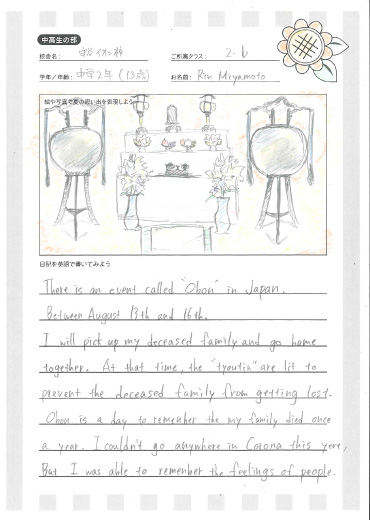 中高生の部
校舎名：
ご所属クラス： 2-b
学年／年齢：中学2年（13歳）
お名前： Rin Miyamoto
絵や写真で夏の思い出を表現しよう
日記を英語で書いてみよう
There is an event called "Obon" in Japan.
Between August 13th and 16th.
I will pick up my deceased family and go home
together. At that time, the "tyoutin" are lit to
prevent the deceased family from getting lost.
Obon is a day to remember the my family died once
a year. I couldn't go anywhere in Corona this yere,
But I was able to remember the feelings of people.